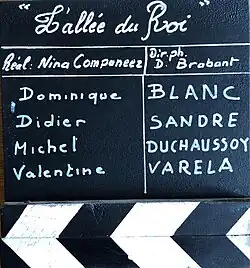 "L'allée du Roi"
Réal: Nina Companeez Dir. ph. D. Brabant
Dominique BLANC
Didier SANDRE
Michel DUCHAUSSOY
Valentine VARELA